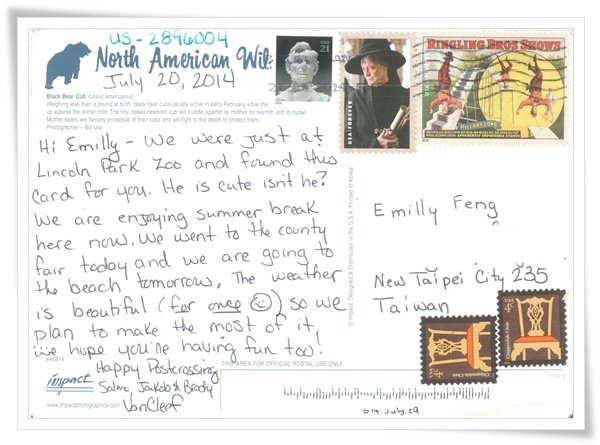 US-2896004
North American Wil
July 20, 2014
Black Bear Cub (Ursus americanus)
Weighing less than a pound at birth, black bear cubs usually arrive in early February while the
up against the winter cold. The tiny, naked newborn cub will cuddle against its mother for warmth and to nurse.
Mother bears are fiercely protective of their cubs and will fight to the death to protect them.
Photographer – Bill Lea
Hi Emilly - We were just at
Lincoln Park Zoo and found this
card for you. He is cute isn't he?
We are enjoying summer break
here now. We went to the county
fair today and we are going to
the beach tomorrow. The weather
is beautiful (for once ☺) so we
plan to make the most of it!
We hope you're having fun too!
#46814
Happy Postcrossing
Jakob & Brody
VanCleef
impact
www.impactphotographics.com
THIS AREA FOR OFFICIAL POSTAL USE ONLY
© Impact, Designed & Distributed in the U.S.A. Printed in Korea
USA
21
USA FOREVER
RINGLING BROS SHOWS
HILLARY LONG
APPARENTLY IMPOSSIBLE STUNTS
Emilly Feng
New Taipei City 235
Taiwan
USA
4¢
Chippendale Chair
USA
4¢
Chippendale Chair
014.July.29